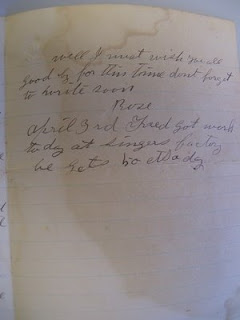 well I must wish you all
good by for this time dont forget
to write soon
Rose
April 3rd Fred Got work
today at Singers factory
he gets 50 cts a day